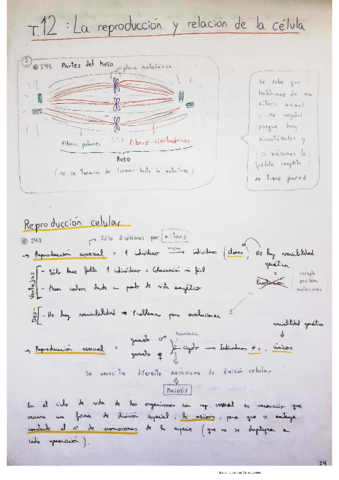 T.12: La reproducción y relación de la célula
① 248 Partes del huso
placa metafásica
Fibras polares Fibras cinetocóricas
Huso
(no se termina de formar hasta la metafase)
Se sabe que
hablamos de una
mitosis animal
y no vegetal
porque hay
microtúbulos y
si miramos la
célula completa
no tiene pared
Reproducción celular
247 Sólo divisiones por mitosis
→ Reproducción asexual = 1 individuo → individuos (clones) No hay variabilidad
genética
Ventajas
- Sólo hace falta 1 individuo =
- Menos costosa desde un punto de vista energético
Evolución
excepto
posibles
mutaciones
Des
- No hay variabilidad → Problemas para evolucionar
variabilidad genética
Fecundación
→ Reproducción sexual = gameto ♂
gameto ♀
Cigoto → Individuos ≠, únicos
Se necesita diferente mecanismo de división celular
Meiosis
En el ciclo de vida de los organismos con rep. sexual es necesario que
ocurra una forma de división especial, la meiosis, para que se mantenga
constante el nº de cromosomas de la especie (que no se dupliquen en
cada generación).
24